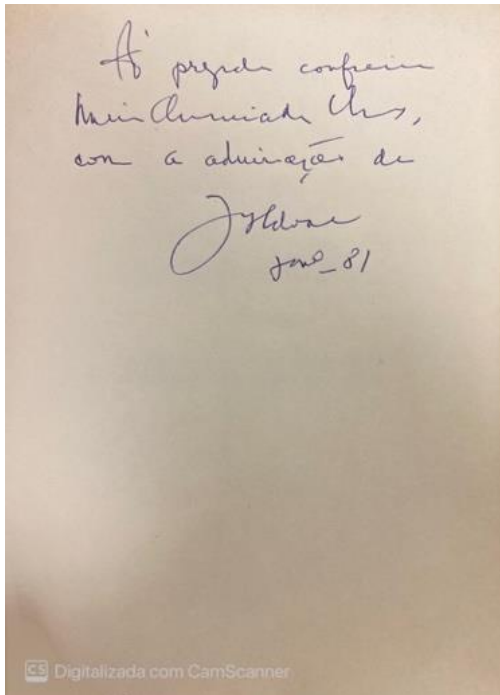 À prezada confreira
Maria Anunciada Chaves,
com a admiração de
janº_81
CS Digitalizada com CamScanner